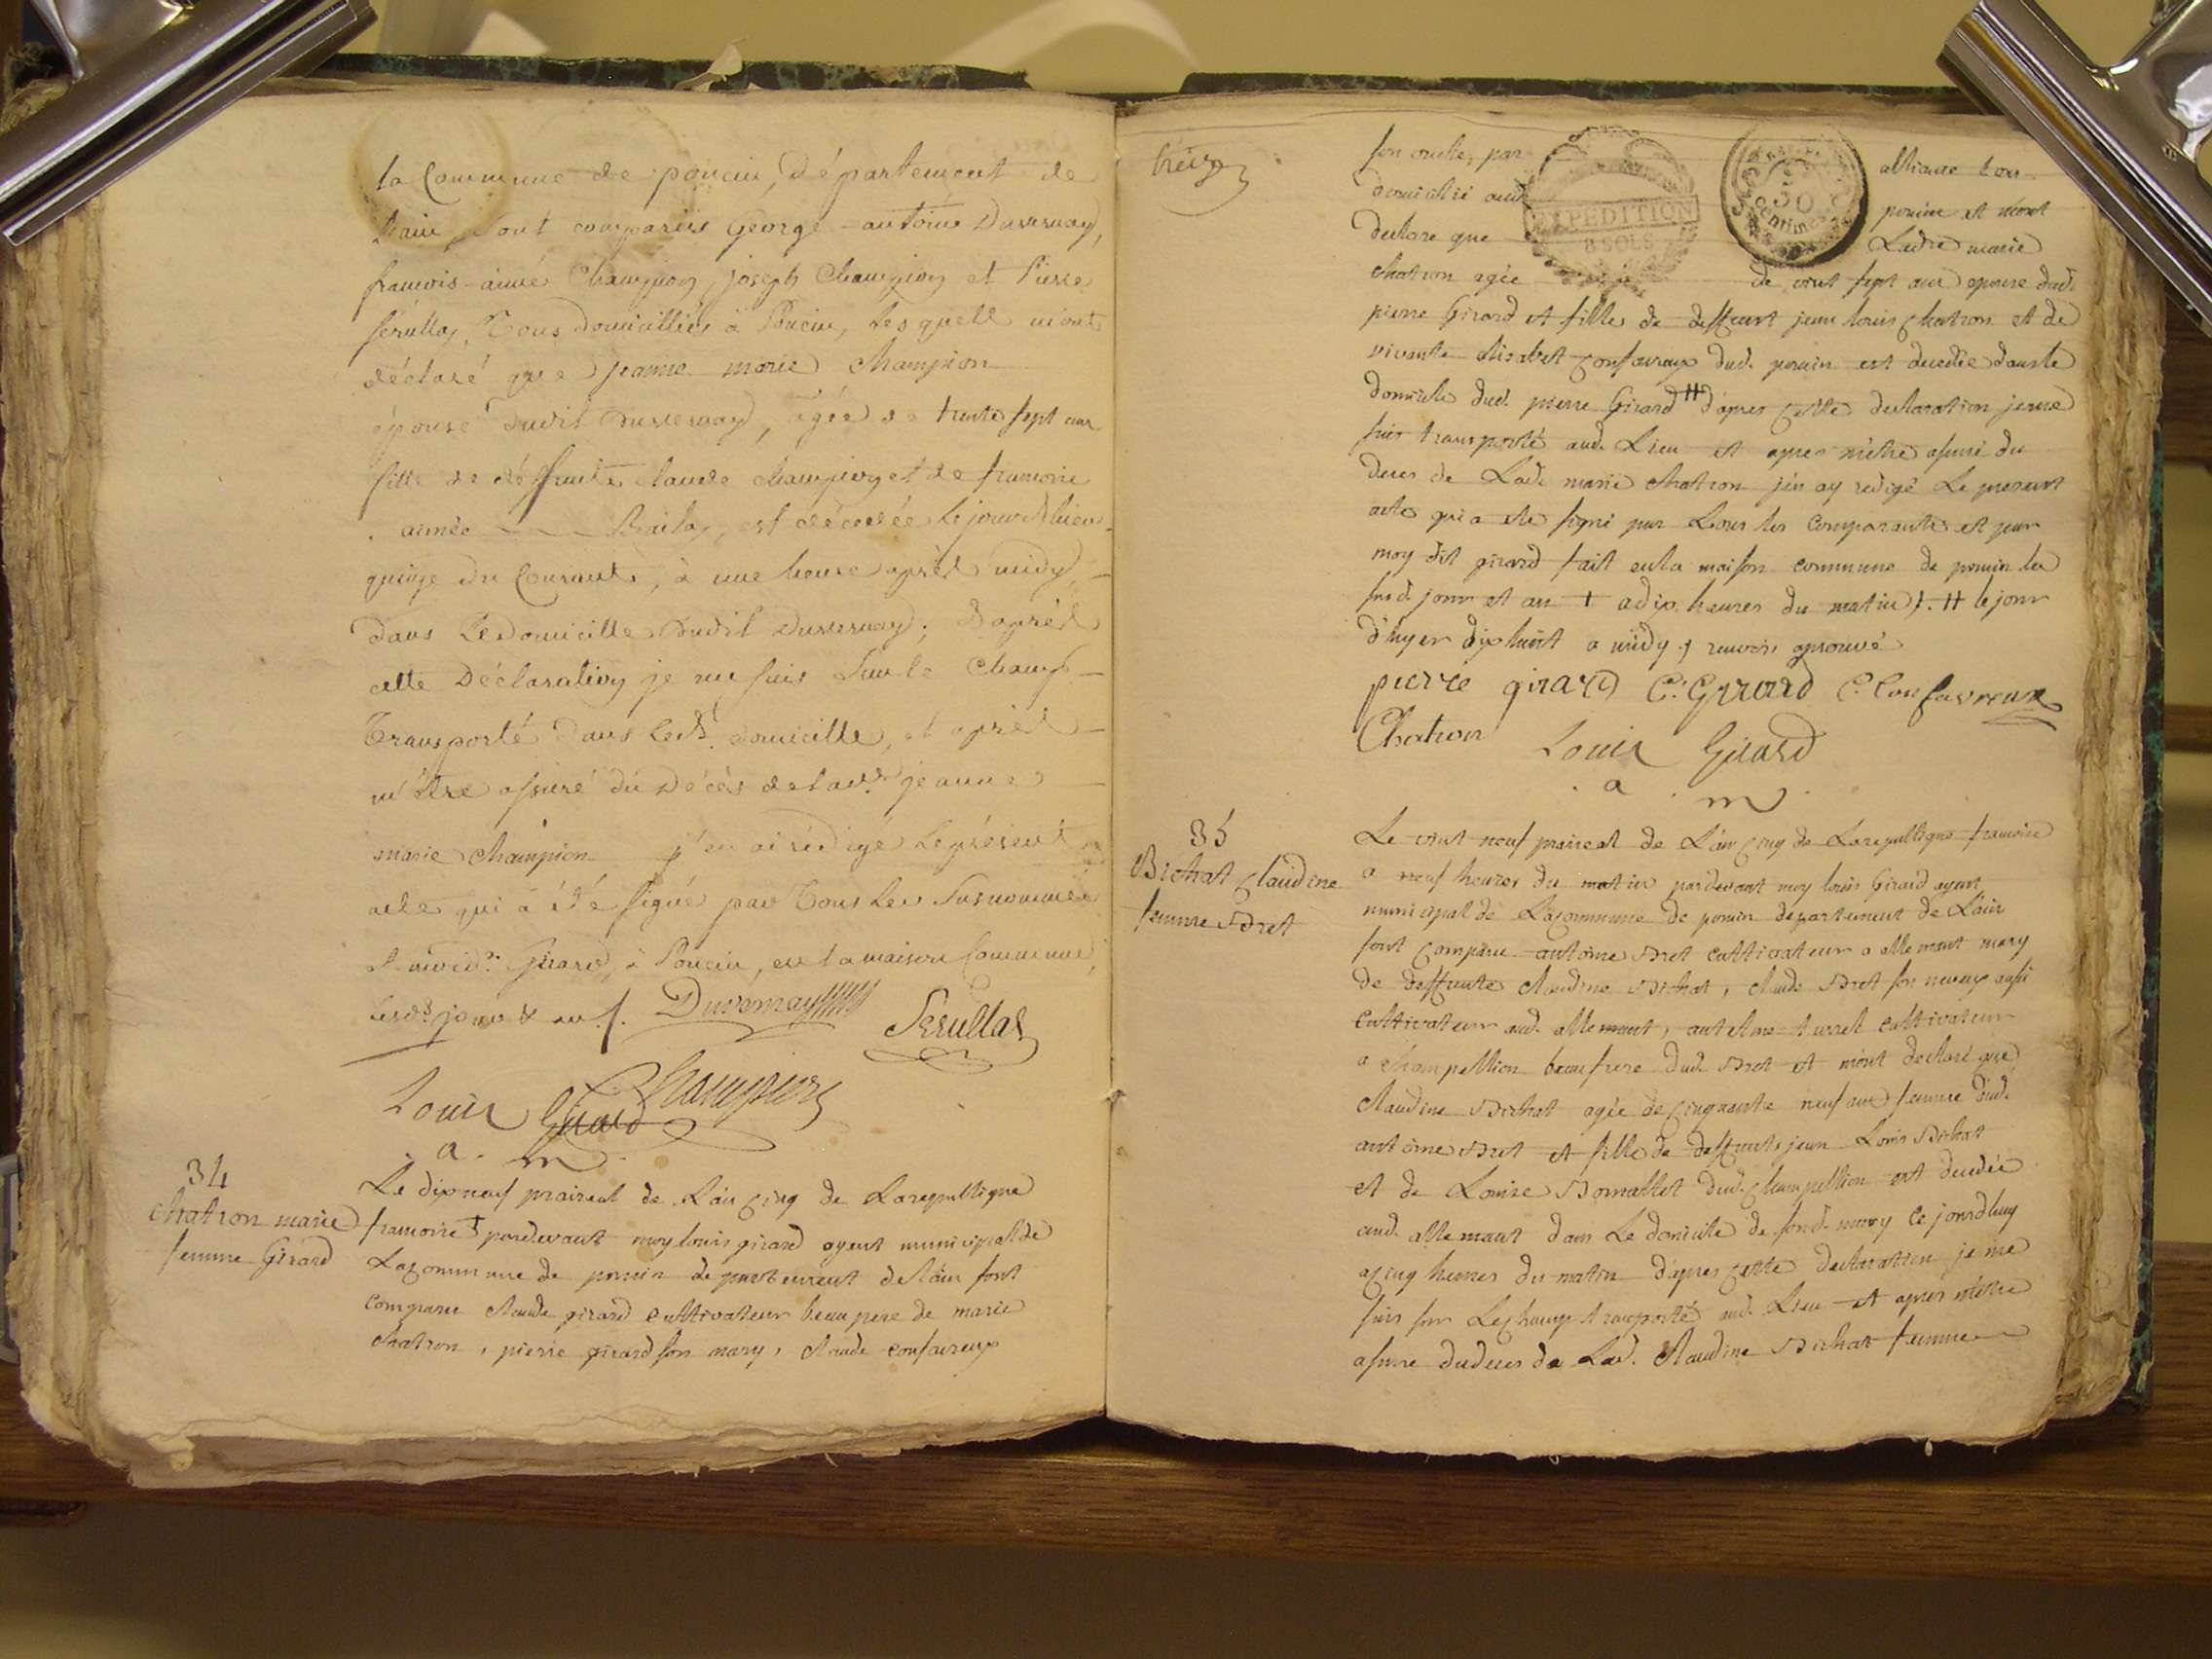 la Commune de poncin, Département de
l'ain, sont comparus George-antoine Duvernay,
francois-aimé Champion, joseph Champion et Pierre
Serullas, Tous domicilliés à Poncin, lesquells m'ont
déclaré que jeanne marie Champion
épouse dudit Duvernay, agée de trente sept ans
fille de déffunte claude champion et de francoise
aimée est décedée le jour d'hier
quinze du Courant, à une heure après midy,
dans le Domicille dudit Duvernay; D'après
cette Déclaration je me suis sur le Champ
Transporté dans led. domicille, et après
m'être assuré du Décès de lad. jeanne
marie Champion j'en ai rédigé le présent
acte qui à été signé par Tous les susnommés
et moid. Girard, à Poncin, en la maison Commune,
lesds. jour & an.
Duvernay
Serullas
Champion
Louis Girard
a. m.
34
Chatron marie
femme Girard
Le dixneuf praireal de L'an cinq de Larepublique
francoise + pardevant moy louis girard agent municipal de
Lacommune de poncin département de lain sont
comparu claude girard cultivateur beaupere de marie
chatron, pierre girard son mary, claude confavreux
treize
son oncle, par alliance tous
domicilié aud poncin et mont
declare que Ladte marie
chatron agée de vint sept ans epouse dud.
pierre Girard et fille de deffunt jean louis chatron et de
vivante elisabet confavreux dud. poncin est decedée dans le
domicile dud. pierre Girard # d'apres cette declaration je me
suis transporté aud. Lieu et apres m'etre assuré du
deces de Lade. marie chatron j'en ay redigé Le present
acte qui a ete signé par tous les comparants et par
moy dit girard fait en la maison commune de poncin les
susd. jour et an + a dix heures du matin). # le jour
d'hyer dix huit a midy renvois aprouvé
pierre girard C. Girard C. Confavreux
Chatron Louis Girard
a m
EXPEDITION
8 SOLS
50
centimes
35
Bichat claudine
femme Bret
Le vint neuf praireal de L'an cinq de Larepublique francoise
a neuf heures du matin pardevant moy louis Girard agent
municipal de Lacommune de poncin departement de L'ain
sont comparu antoine Bret cultivateur a allemant mary
de deffunte claudine Bichat, claude Bret son neveux aussi
cultivateur aud. allemant, antelme turrel cultivateur
a champellion beaufrere dud. Bret et m'ont declaré que
claudine Bichat agée de cinquante neuf ans femme dud.
antoine Bret et fille de deffunts jean Louis Bichat
et de Louise dud. champellion est decedée
aud. allemant dans Le domicile de sond. mary ce jourdhuy
a cinq heures du matin d'apres cette declaration je me
suis sur Lechamp transporté aud. Lieu et apres m'etre
assure dudeces de Lad. claudine Bichat femme